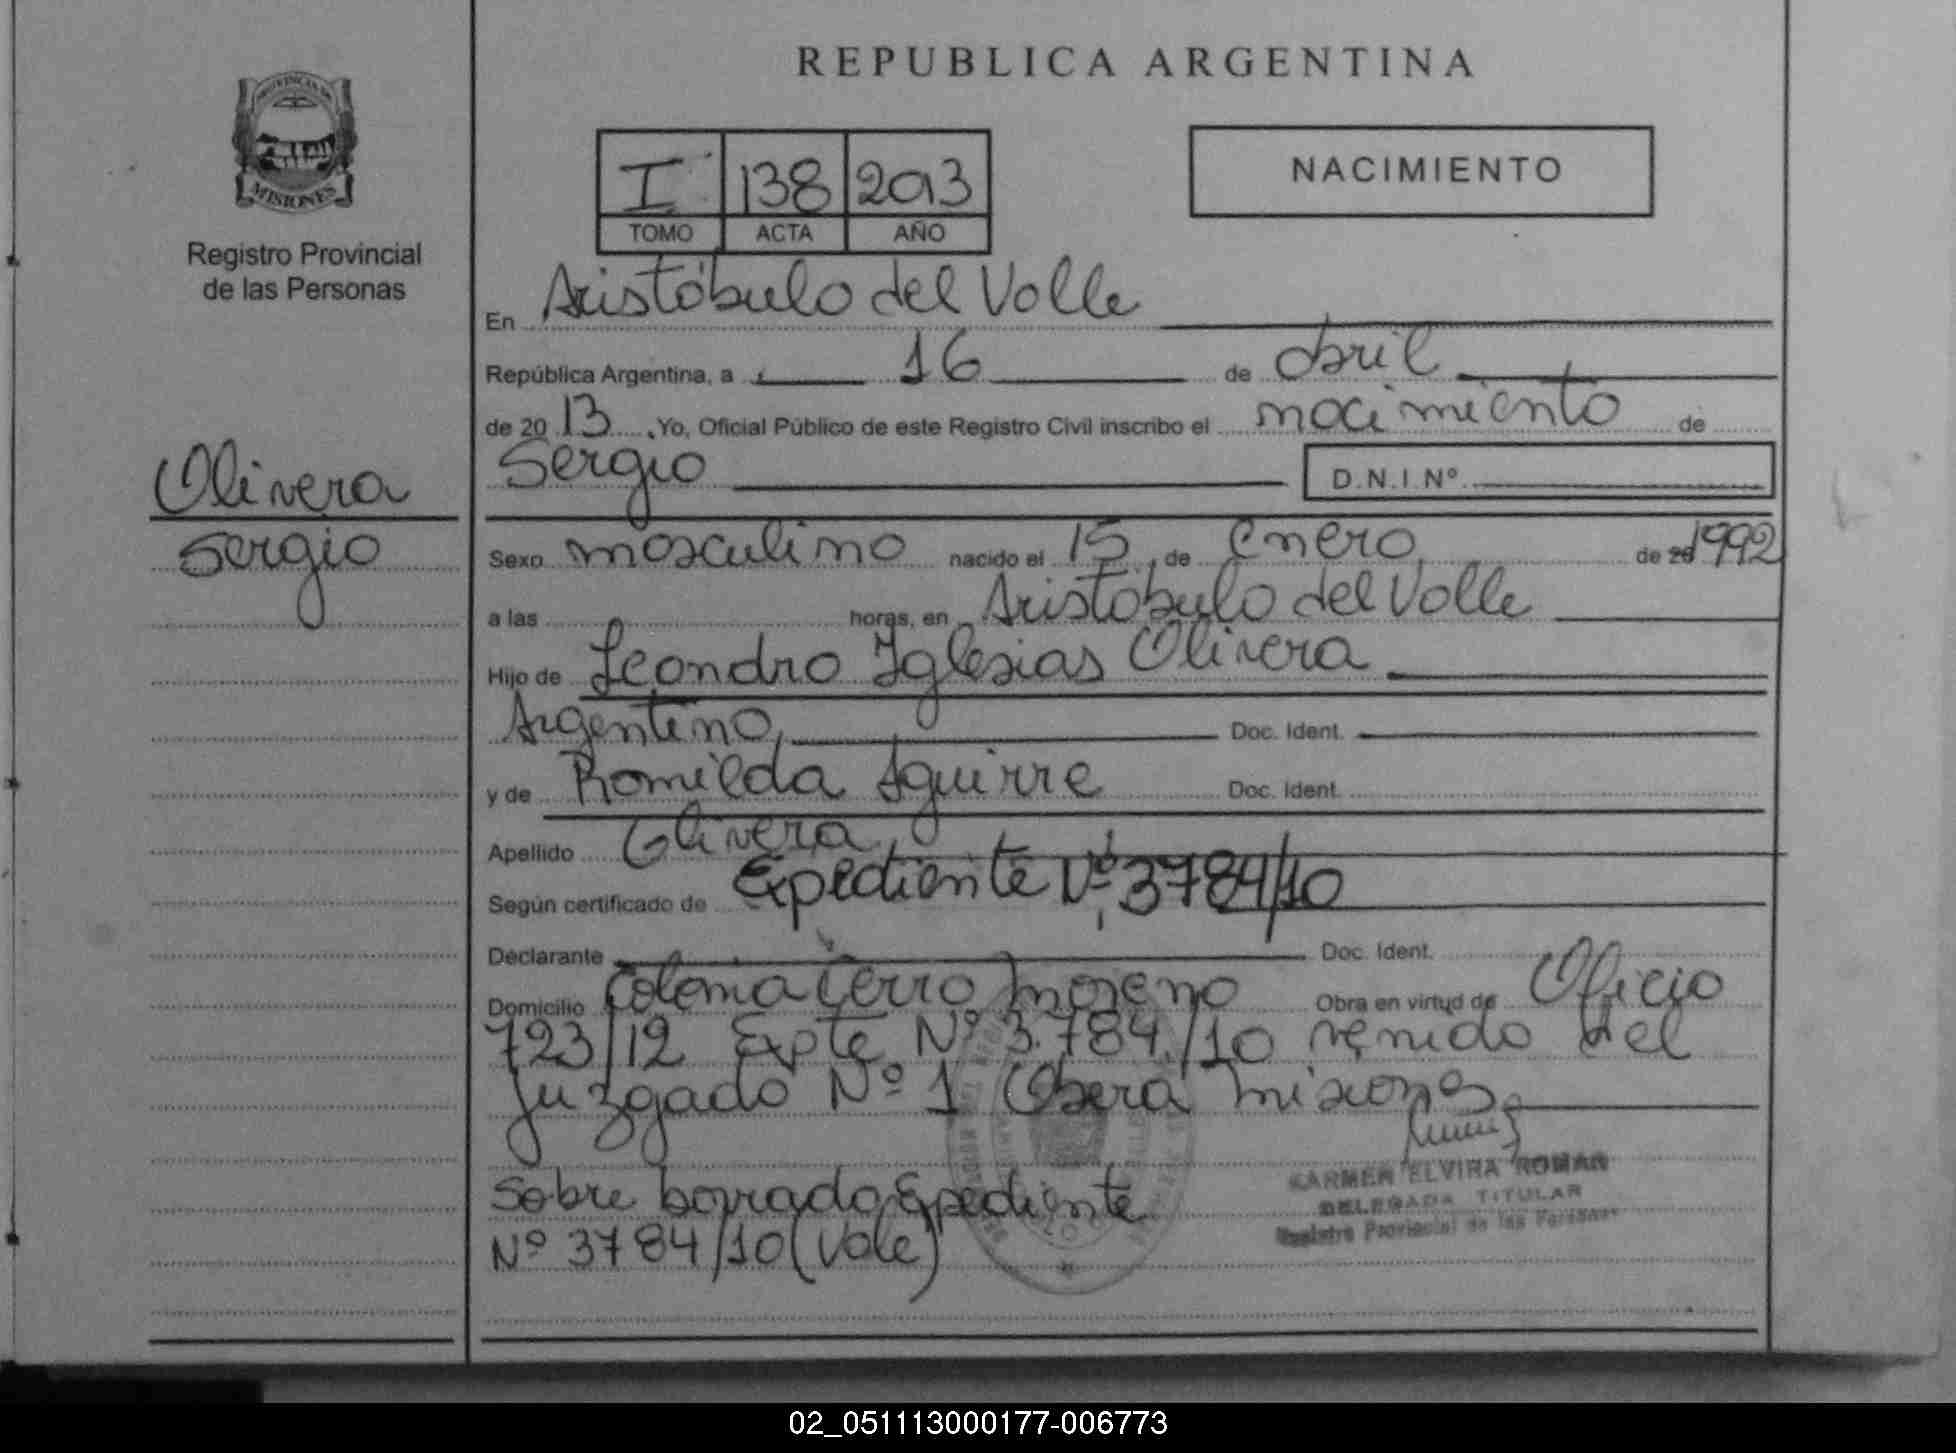 REPUBLICA ARGENTINA
PROVINCIA DE
MISIONES
Registro Provincial
de las Personas
I 138 2013
TOMO ACTA AÑO
NACIMIENTO
En Aristóbulo del Valle
República Argentina, a 16 de abril
de 20 13 Yo, Oficial Público de este Registro Civil inscribo el nacimiento de
Sergio D.N.I.Nº
Olivera
Sergio
Sexo masculino nacido el 15 de Enero de 20 1992
a las horas, en Aristóbulo del Valle
Hijo de Leandro Iglesias Olivera
Argentino Doc. Ident.
y de Romilda Aguirre Doc. Ident.
Apellido Olivera
Según certificado de Expediente Nº 3784/10
Declarante Doc. Ident.
Domicilio Colonia Cerro Moreno Obra en virtud de Oficio
723/12 Expte Nº 3.784/10 venido del
Juzgado Nº 1 Oberá Misiones
KARMEN ELVIRA ROMAN
DELEGADA TITULAR
Registro Provincial de las Personas
Sobre borrado Expediente
Nº 3784/10 (Vale)
02_051113000177-006773